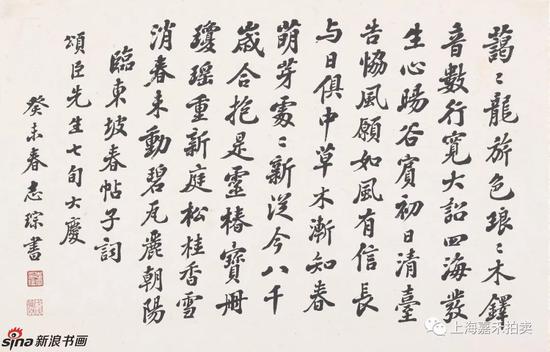 藹々龍旂色琅々木鐸
音數行寬大詔四海發
生心暘谷賓初日清臺
告協風願如風有信長
与日俱中草木漸知春
萌芽處々新從今八千
歲合抱是靈椿寶冊
瓊瑤重新庭松桂香雪
消春未動碧瓦麗朝陽
臨東坡春帖子詞
頌臣先生七旬大慶
癸未春志琮書
sina新浪书画
上海嘉禾拍卖